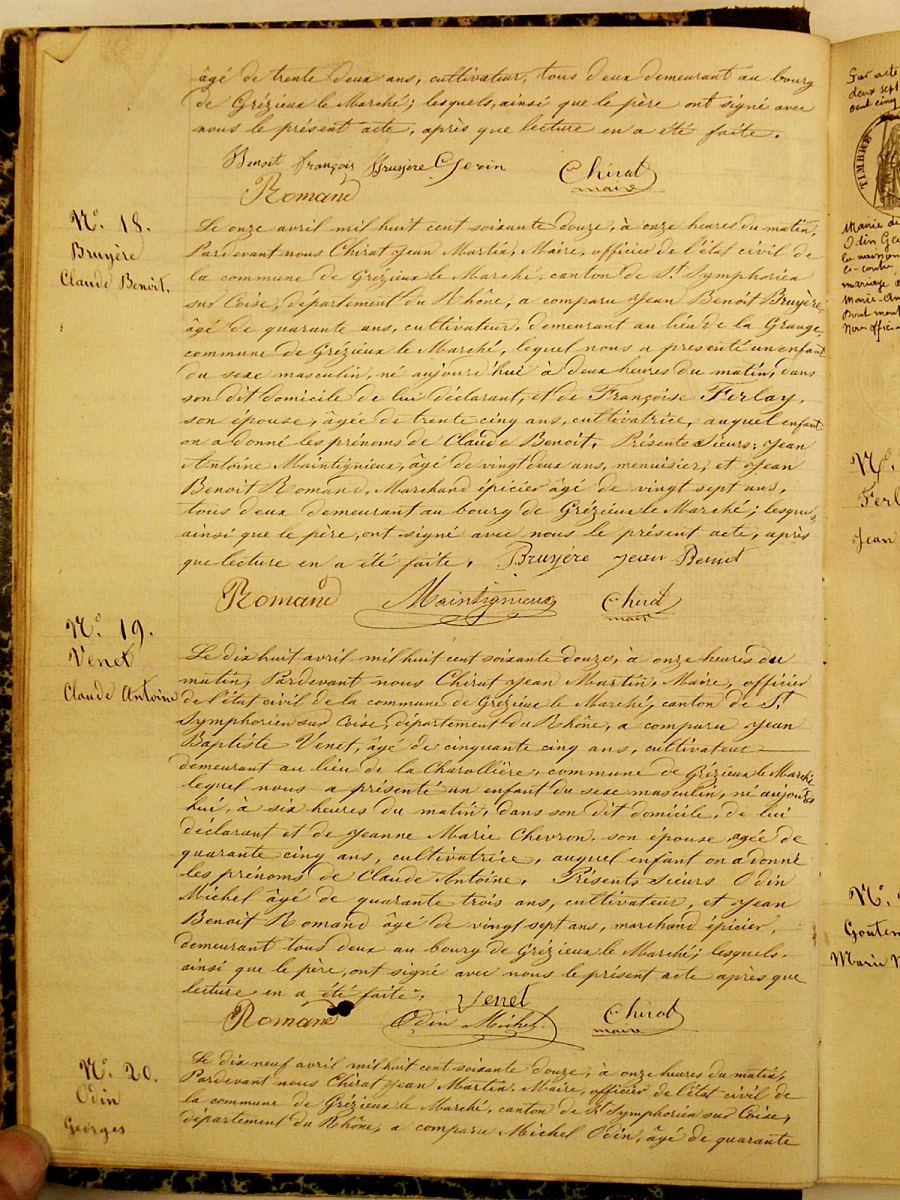 âgé de trente deux ans, cultivateur, tous deux demeurant au bourg
de Grézieux le Marché; lesquels, ainsi que le père ont signé avec
nous le présent acte, après que lecture en a été faite.
Benoit françois Bruyère Gerin Chirat
Romand maire
N.º 18.
Bruyère
Claude Benoit.
Le onze avril mil huit cent soixante douze, à onze heures du matin,
Pardevant nous Chirat Jean Martin, Maire, officier de l'état civil de
la commune de Grézieux le Marché, canton de St Symphorien
sur Coise, département du Rhône, a comparu Jean Benoit Bruyère
âgé de quarante ans, cultivateur, demeurant au lieu de la Grange,
commune de Grézieux le Marché, lequel nous a présenté un enfant
du sexe masculin, né aujourd'hui à deux heures du matin, dans
son dit domicile de lui déclarant, et de Françoise Ferlay,
son épouse, âgée de trente cinq ans, cultivatrice, auquel enfant
on a donné les prénoms de Claude Benoit. Présents Sieurs: Jean
Antoine Maintignieux, âgé de vingt deux ans, menuisier, et Jean
Benoit Romand, Marchand épicier âgé de vingt sept ans,
tous deux demeurant au bourg de Grézieux le Marché; lesquels,
ainsi que le père, ont signé avec nous le présent acte, après
que lecture en a été faite. Bruyère Jean Benoit
Romand Maintignieux Chirat
maire
N.º 19.
Venet
Claude Antoine
Le dix huit avril mil huit cent soixante douze, à onze heures du
matin, Pardevant nous Chirat Jean Martin, Maire, officier
de l'état civil de la commune de Grézieux le Marché, canton de St
Symphorien sur Coise, département du Rhône, a comparu Jean
Baptiste Venet, âgé de cinquante cinq ans, cultivateur
demeurant au lieu de la Charollière, commune de Grézieux le Marché
lequel nous a présenté un enfant du sexe masculin, né aujourd'
hui, à six heures du matin, dans son dit domicile, de lui
déclarant et de Jeanne Marie Chevron, son épouse agée de
quarante cinq ans, cultivatrice, auquel enfant on a donné
les prénoms de Claude Antoine. Présents sieurs Odin
Michel âgé de quarante trois ans, cultivateur, et Jean
Benoit Romand âgé de vingt sept ans, marchand épicier,
demeurant tous deux au bourg de Grézieux le Marché; lesquels,
ainsi que le père, ont signé avec nous le présent acte après que
lecture en a été faite. Venet
Romand Odin Michel Chirat
maire
N.º 20.
Odin
Georges
Le dix neuf avril mil huit cent soixante douze, à onze heures du matin,
Pardevant nous Chirat Jean Martin, Maire, officier de l'état civil de
la commune de Grézieux le Marché, canton de St Symphorien sur Coise,
département du Rhône, a comparu Michel Odin, âgé de quarante
Par acte
deux sept
cent cinq
TIMBRE
Mairie de
Odin
ci-contre
mariage
Marie-An
Dont ment
Nous offici
N.º
Ferl
Jean
N.º
Gouten
Marie